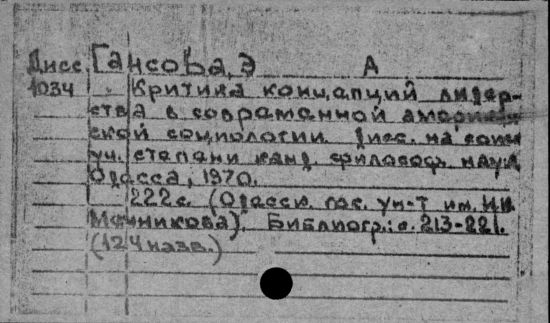 Дисс. Гансова, Э А
1034 Критика концепций лидер-
ства в современной америкн
ской социологии. Дисс. на соиск
уч. степени канд. философ. наук
Одесса, 1970.
222 с. (Одесск. гос. ун-т им. И.И.
Мечникова). Библиогр.: с. 213-221.
(124 назв.)